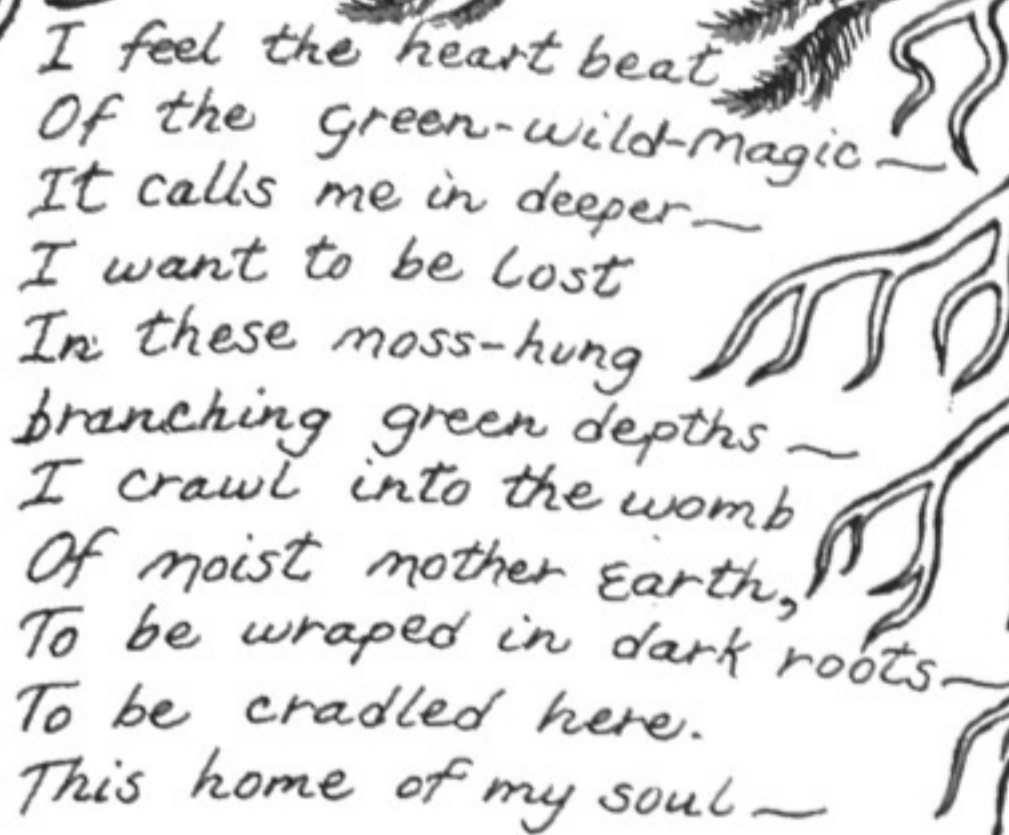 I feel the heart beat
Of the green-wild-magic ~
It calls me in deeper ~
I want to be lost
In these moss-hung
branching green depths ~
I crawl into the womb
Of moist mother Earth,
To be wraped in dark roots ~
To be cradled here.
This home of my soul ~